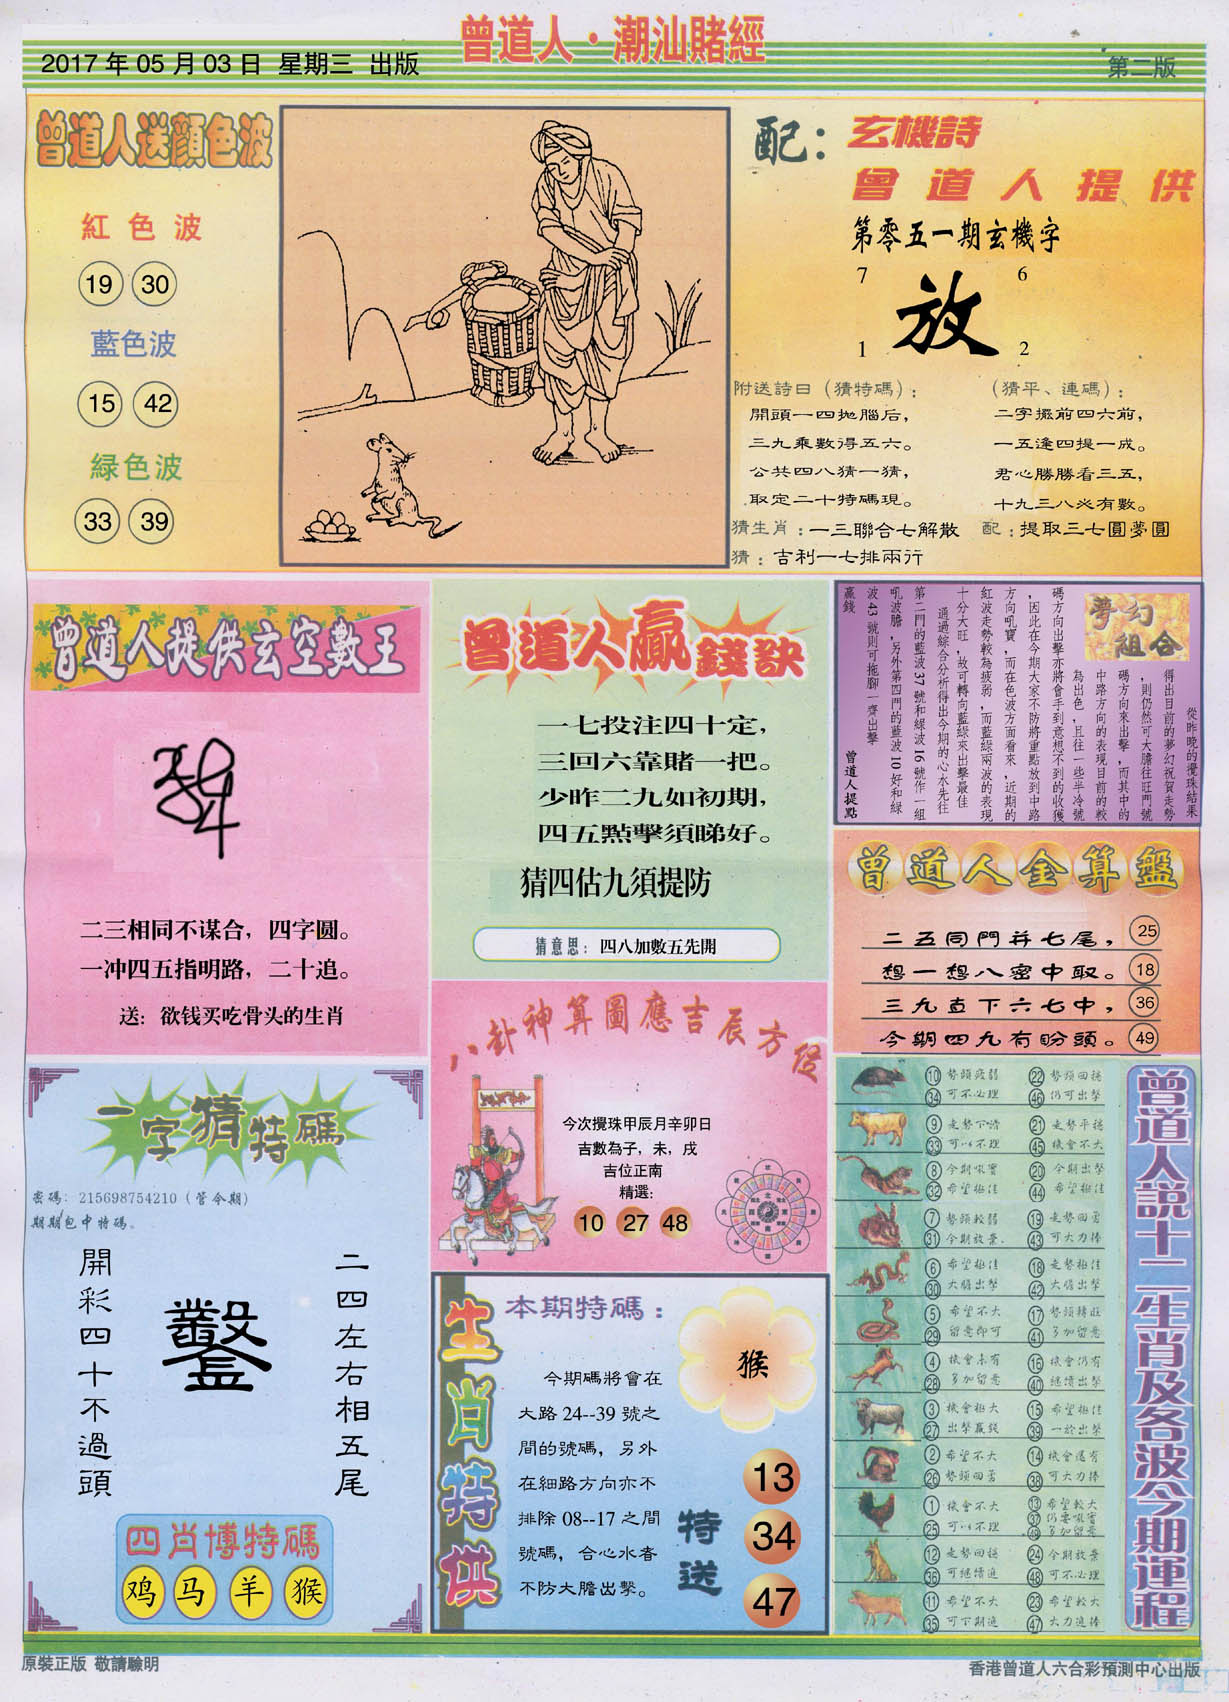 曾道人·潮汕賭經
2017年05月03日 星期三 出版
第二版
曾道人送顏色波
紅色波
19 30
藍色波
15 42
緑色波
33 39
配：玄機詩
曾道人提供
第零五一期玄機字
7 6
放
1 2
附送詩曰（猜特碼）：
開頭一四拋腦后，
三九乘數得五六。
公共四八猜一猜，
取定二十特碼現。
（猜平、連碼）：
二字攔前四六前，
一五逢四提一成。
君心勝勝看三五，
十九三八必有數。
猜生肖：一三聯合七解散 配：提取三七圓夢圓
猜：吉利一七排兩行
曾道人提供玄空數王
二三相同不谋合，四字圆。
一冲四五指明路，二十追。
送：欲钱买吃骨头的生肖
曾道人贏錢訣
一七投注四十定，
三回六靠賭一把。
少昨二九如初期，
四五點擊須睇好。
猜四估九須提防
猜意思：四八加數五先開
夢幻組合
從昨晚的攪珠結果
得出目前的夢幻祝賀走勢
，則仍然可大膽往旺門號
碼方向來出擊，而其中的
中路方向的表現目前的較
為出色，且往一些半冷號
碼方向出擊亦將會手到意想不到的收獲
，因此在今期大家不防將重點放到中路
方向吼寶，而在色波方面看來，近期的
紅波走勢較為疲弱，而藍綠兩波的表現
十分大旺，故可轉向藍綠來出擊最佳
通過綜合分析得出今期的心水先往
第二門的藍波37號和綠波16號作一組
吼波膽，另外第四門的藍波10好和綠
波43號則可拖腳一齊出擊
贏錢
曾道人提點
曾道人金算盤
二五同門并七尾， 25
想一想八密中取。 18
三九直下六七中， 36
今期四九有盼頭。 49
八卦神算圖應吉辰方位
今次攪珠甲辰月辛卯日
吉數為子，未，戌
吉位正南
精選:
10 27 48
一字猜特碼
密碼：215698754210（管令期）
期期包中特碼。
二四左右相五尾
鑿
開彩四十不過頭
四肖博特碼
鸡 马 羊 猴
生肖特供
本期特碼：
猴
今期碼將會在
大路24--39號之
間的號碼，另外
在細路方向亦不
排除08--17之間
號碼，合心水者
不防大膽出擊。
特送
13
34
47
曾道人說十二生肖及各波今期運程
10 勢頭疲弱 22 勢頭回穩
34 可不必理 46 仍可出擊
9 走勢下滑 21 走勢平穩
33 可以不理 45 機會不大
8 今期吼寶 20 今期出擊
32 希望極佳 44 希望極佳
7 勢頭較弱 19 走勢回勇
31 今期放棄 43 可大力捧
6 希望極佳 18 走勢極佳
30 大膽出擊 42 大膽出擊
5 希望不大 17 勢頭轉旺
29 留意即可 41 多加留意
4 機會未有 16 機會仍有
28 多加留意 40 繼續出擊
3 機會極大 15 希望極佳
27 出擊贏錢 39 一於出擊
2 希望不大 14 機會還有
26 勢頭回勇 38 可大力捧
1 機會不大 13 希望較大
25 可以不理 37 仍要吼寶
49 多加留意
12 走勢回穩 24 今期放棄
36 可繼續追 48 可不必理
11 希望不大 23 希望較大
35 可下期追 47 大力追捧
原裝正版 敬請驗明
香港曾道人六合彩預測中心出版